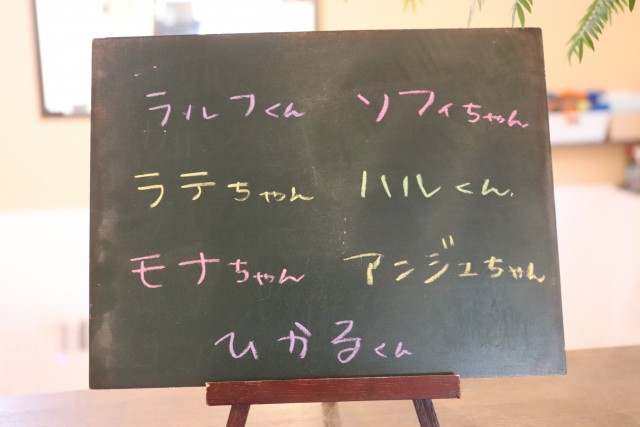 ラルフくん ソフィちゃん
ラテちゃん ハルくん
モナちゃん アンジュちゃん
ひかるくん